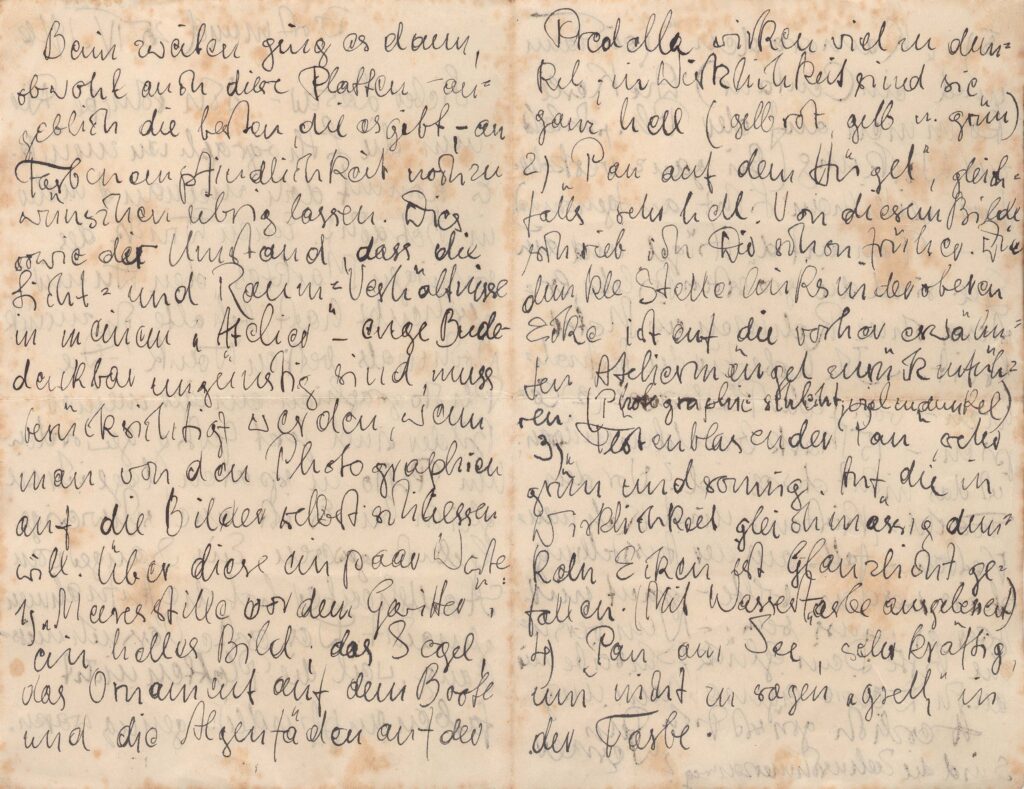 Beim zweiten ging es dann,
obwohl auch diese Platten – an-
geblich die besten, die es gibt, – an
Farbenempfindlichkeit noch zu
wünschen übrig lassen. Dies
sowie der Umstand, dass die
Licht- und Raum-Verhältnisse
in meinem „Atelier" – enge Bude
denkbar ungünstig sind, muss
berücksichtigt werden, wenn
man von den Photographien
auf die Bilder selbst schliessen
will. Über diese ein paar Worte:
1) „Meeresstille vor dem Gewitter",
ein helles Bild, das Segel,
das Ornament auf dem Boote
und die Algenfäden auf der
Predella wirken viel zu dun-
kel; in Wirklichkeit sind sie
ganz hell (gelbrot, gelb u. grün)
2) „Pan auf dem Hügel", gleich-
falls sehr hell. Von diesem Bilde
schrieb ich Dir schon früher. Die
dunkle Stelle links in der oberen
Ecke ist auf die vorher erwähn-
ten Ateliermängel zurückzufüh-
ren. (Photographie schlecht, viel zu dunkel)
3) „Flötenblasender Pan", sehr
grün und sonnig. Auf die in
Wirklichkeit gleichmässig dun-
keln Ecken ist Glanzlicht ge-
fallen. (Mit Wasserfarbe ausgebessert)
4) „Pan am See", sehr kräftig,
um nicht zu sagen „grell" in
der Farbe.